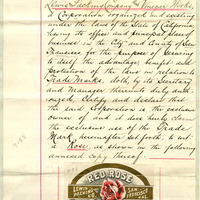 Lewis Packing Company
a Corporation organized and existing
under the laws of the State of California
having its office and principal place of
business in the City and County of San
Francisco for the purpose of securing
to itself the advantage, benefit and
protection of the laws in relation to
Trade Marks, doth, by its Secretary
and Manager thereunto duly auth-
orized, Certify and declare that
the said Corporation is the exclusive
owner of and it does hereby claim
the exclusive use of the Trade
Mark hereinafter set forth, to wit
Rose, as shown in the following
annexed copy thereof.
RED ROSE
LEWIS
PACKING
SAN
FRANCISCO